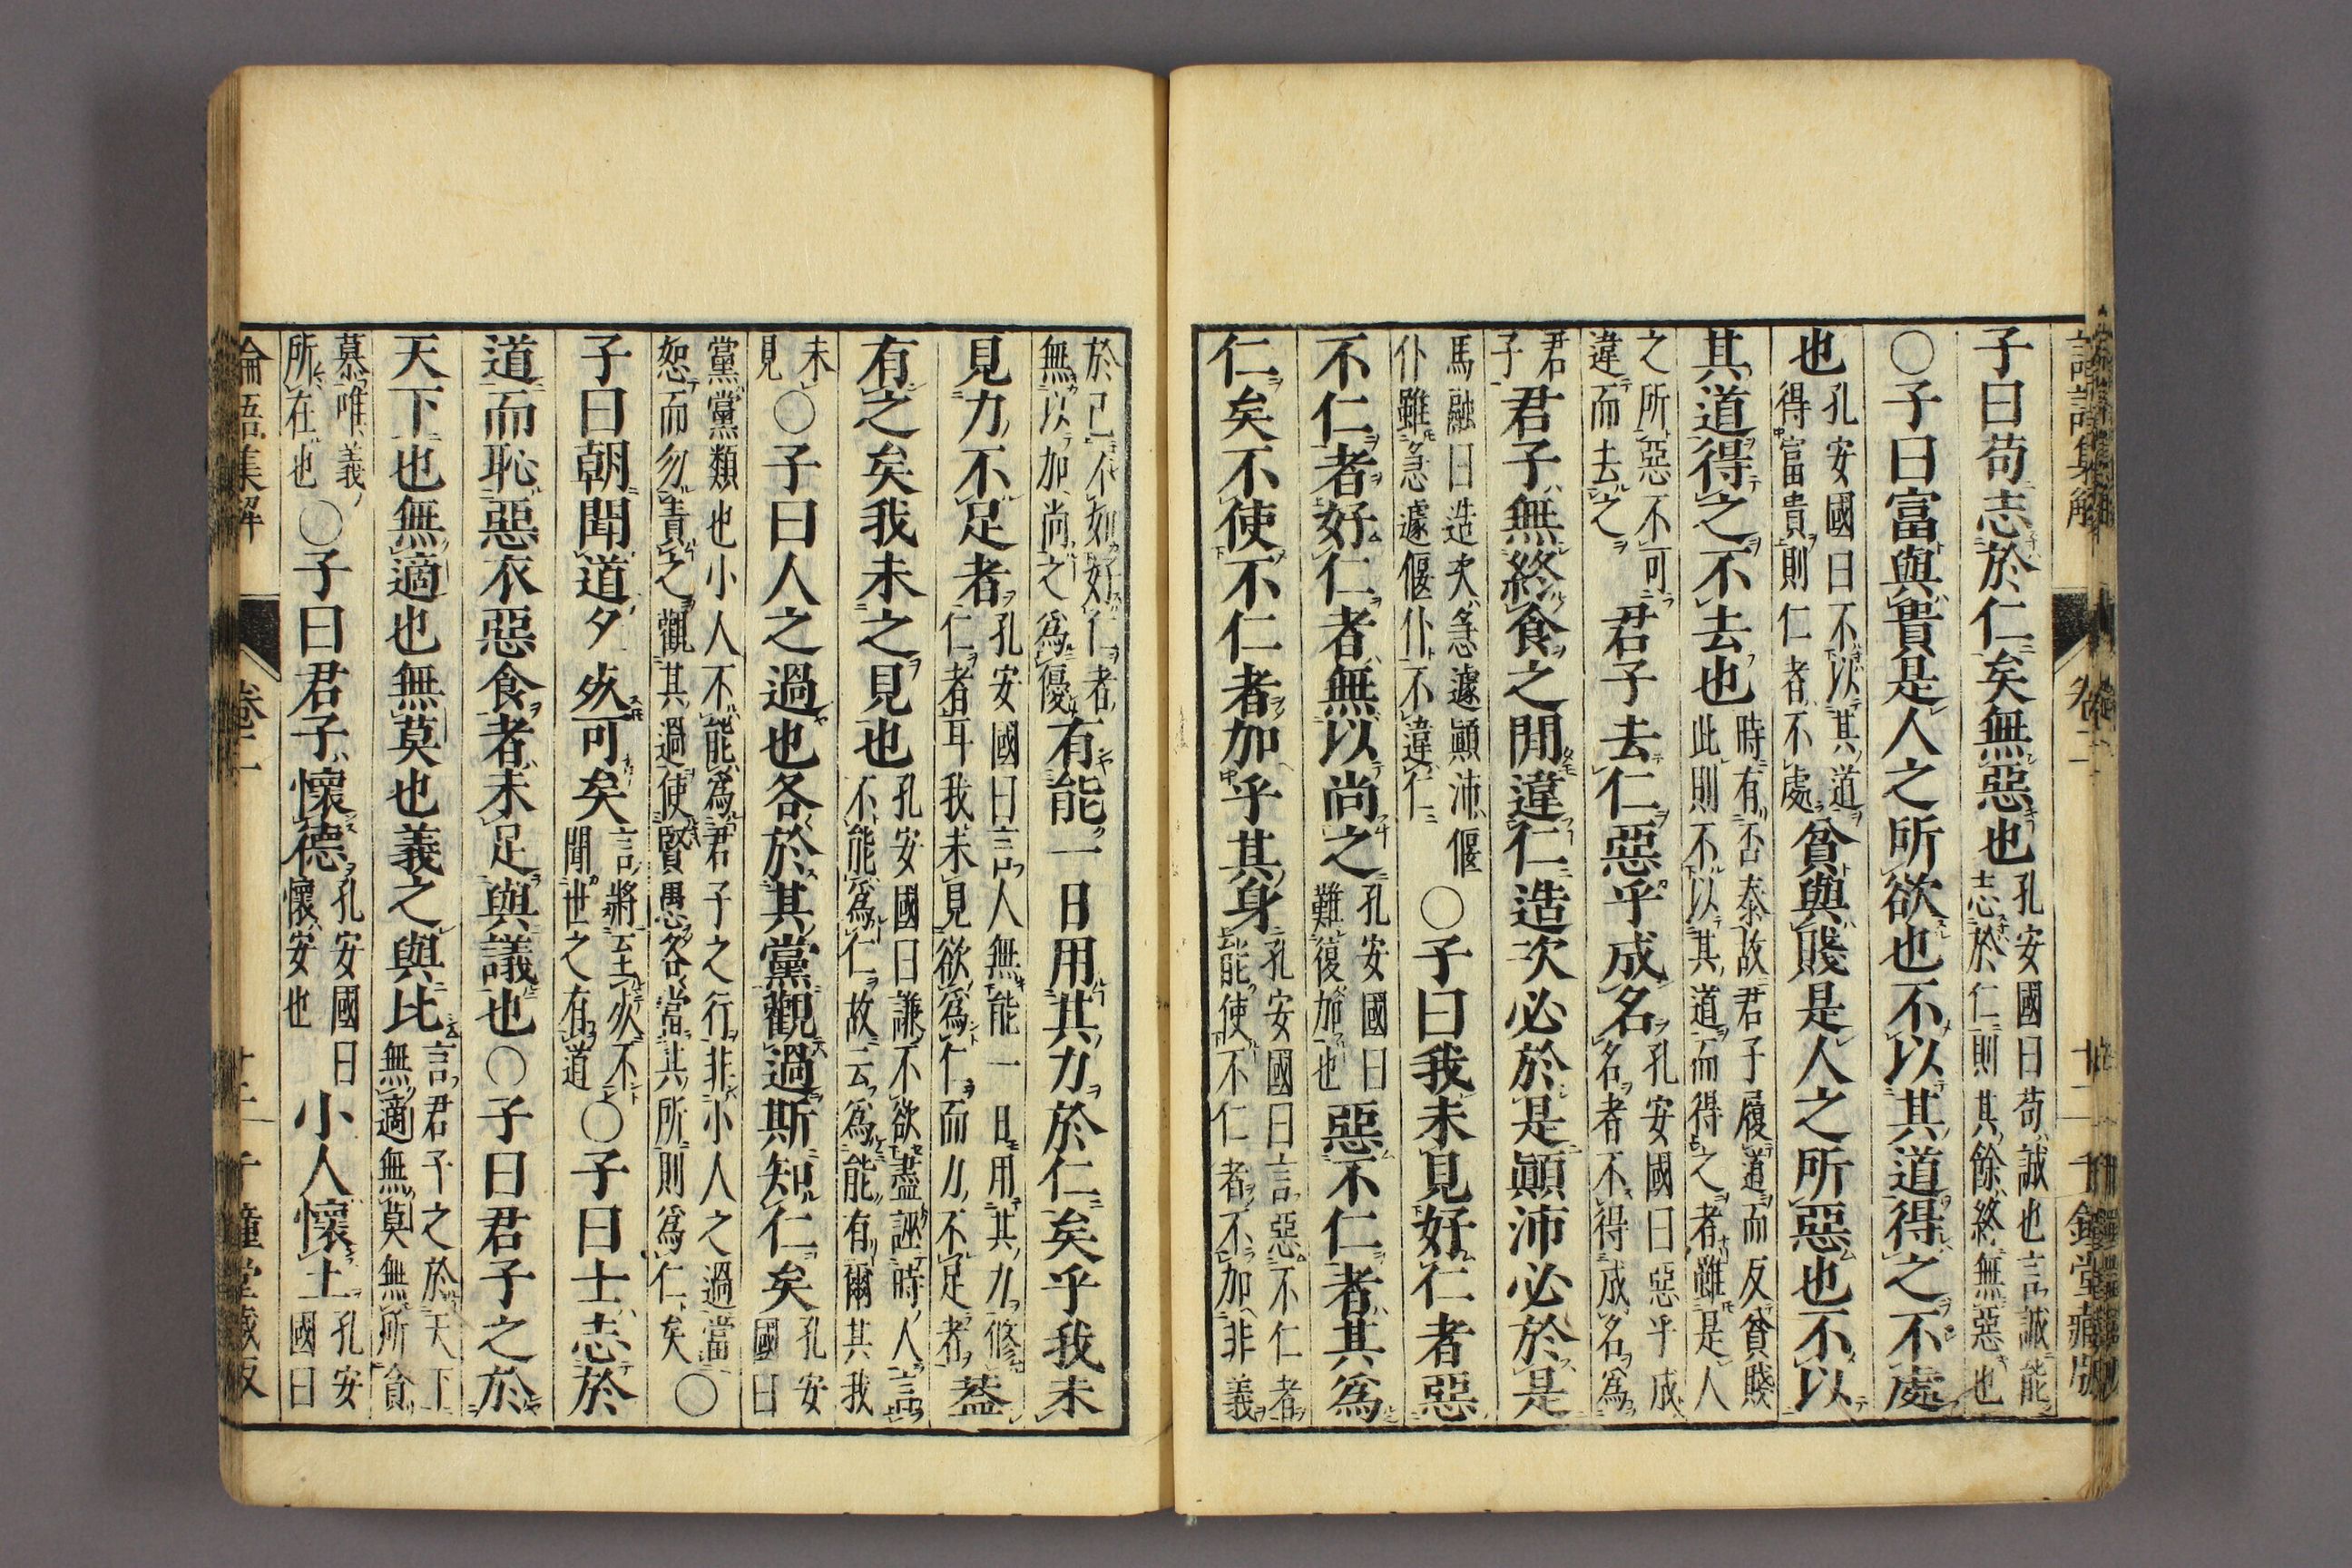 子曰苟志於仁矣無惡也孔安國曰苟誠也言誠能志於仁則其餘終無惡也
〇子曰富與貴是人之所欲也不以其道得之不處
也孔安國曰不以其道得富貴則仁者不處貧與賤是人之所惡也不以
其道得之不去也時有否泰故君子履道而反貧賤此則不以其道而得之者雖是人
之所惡不可違而去之君子去仁惡乎成名孔安國曰惡乎成名者不得成名爲
君子君子無終食之閒違仁造次必於是顚沛必於是
馬融曰造次急遽顚沛偃仆雖急遽偃仆不違仁〇子曰我未見好仁者惡
不仁者好仁者無以尚之孔安國曰難復加也惡不仁者其爲
仁矣不使不仁者加乎其身孔安國曰言惡不仁者能使不仁者不加非義
於己不如好仁者無以加尚之爲優有能一日用其力於仁矣乎我未
見力不足者孔安國曰言人無能一日用其力修仁者耳我未見欲爲仁而力不足者蓋
有之矣我未之見也孔安國曰謙不欲盡誣時人言不能爲仁故云爲能有爾其我
未見〇子曰人之過也各於其黨觀過斯知仁矣孔安國曰
黨黨類也小人不能爲君子之行非小人之過當恕而勿責之觀其過使賢愚各當其所則爲仁矣〇
子曰朝聞道夕死可矣言將至死不聞世之有道〇子曰士志於
道而恥惡衣惡食者未足與議也〇子曰君子之於
天下也無適也無莫也義之與比言君子之於天下無適無莫無所貪
慕唯義所在也〇子曰君子懷德孔安國曰懷安也小人懷土孔安國曰
論語集解 卷二 十三 千鍾堂藏版